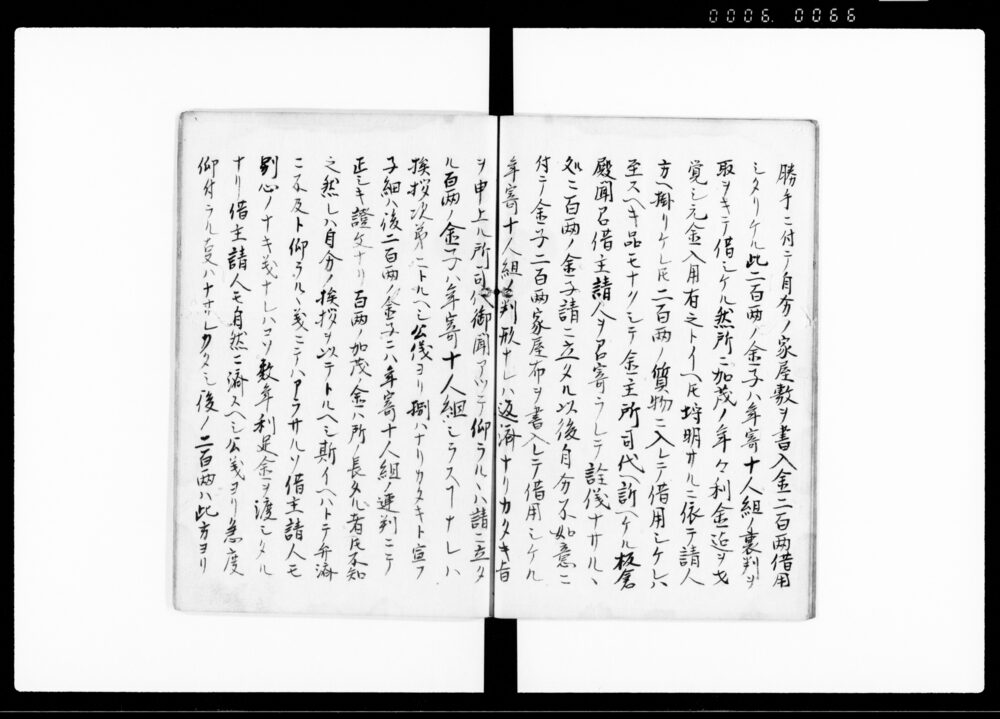 0006. 0066
勝手ニ付テ自分ノ家屋敷ヲ書入金二百両借用
シタリケル此二百両ノ金子ハ年寄十人組ノ裏判ヲ
取ヲキテ借シケル然所ニ加茂ノ年々利金迄ヲ才
覚シ元金入用有之トイヘ𪜈埒明サルニ依テ請人
方ヘ掛リケレ𪜈二百両ノ質物ニ入レテ借用シケレハ
至スヘキ品モナクシテ金主所司代ヘ訴ヘケル板倉
殿聞召借主請人ヲ召寄ラレテ詮儀ナサルヽ
処ニ百両ノ金子請ニ立タル以後自分不如意ニ
付テ金子二百両家屋布ヲ書入レテ借用シケル
年寄十人組ノ判形ナレハ返済ナリカタキ旨
ヲ申上ル所司代御聞アツテ仰ラルヽハ請ニ立タ
ル百両ノ金子ハ年寄十人組シラスナレハ
挨拶次第ニトルヘシ公儀ヨリ捌ハナリカタキト宣フ
子細ハ後二百両ノ金子ニハ年寄十人組ノ連判ニテ
正シキ證文ナリ百両ノ加茂ノ金ハ所ノ長タル者𪜈不知
之然レハ自分ノ挨拶ヲ以テトルヘシ斯イヘハトテ弁済
ニ不及ト仰ラルヽ義ニテハアラサルソ借主請人モ
別心ノナキ義ナレハコソ数年利足金ヲ渡シタル
ナリ借主請人モ自然ニ済スヘシ公義ヨリ急度
仰付ラル夏ハナサレカタシ後ノ二百両ハ此方ヨリ